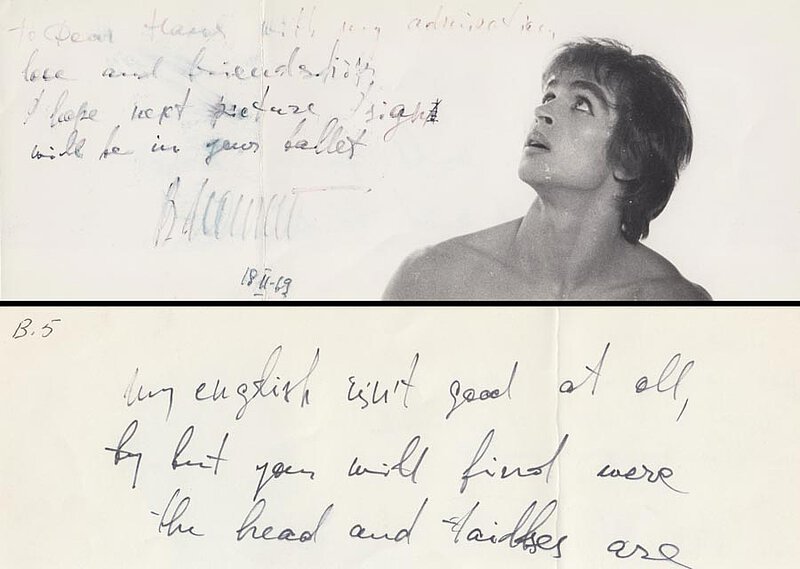 to Dear Hans, with my admiration,
love and friendship,
I hope next picture I sign
will be in your ballet
18 II-69
B.5
my english isn't good at all,
by but you will find were
the head and are